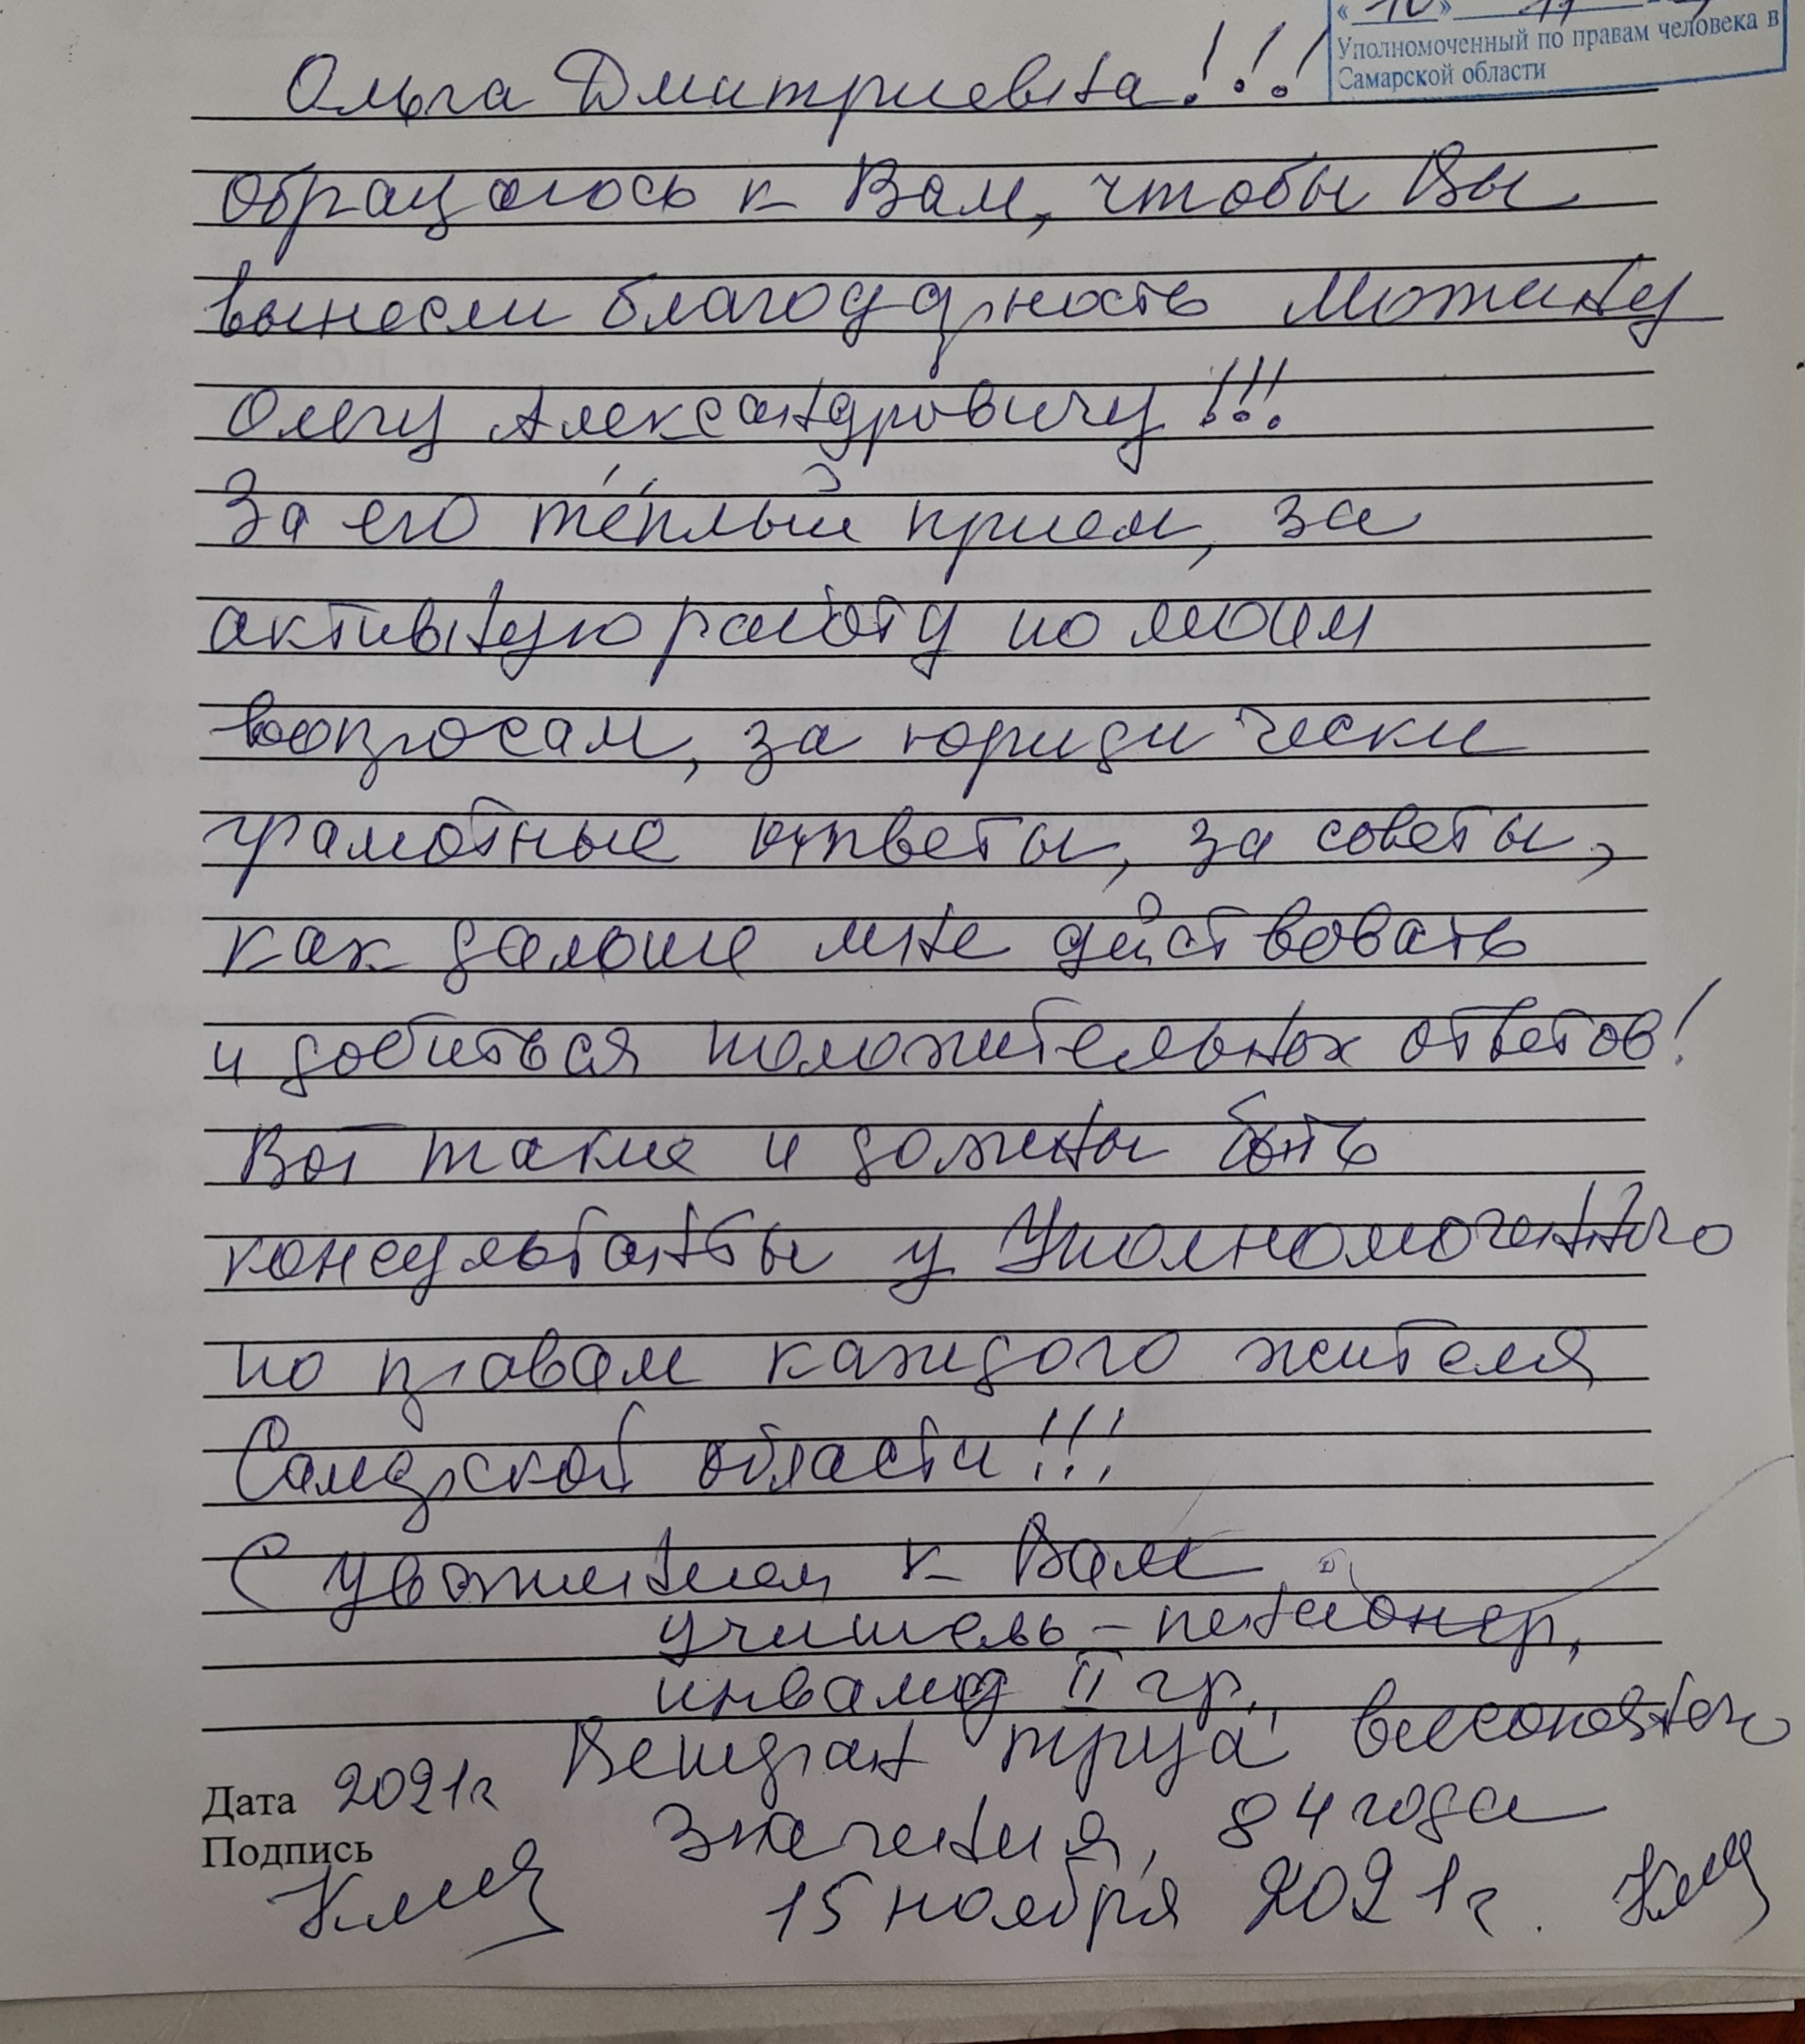 «10» 11
Уполномоченный по правам человека в
Самарской области
Ольга Дмитриевна!!!
обращаюсь к Вам, чтобы Вы
вынесли благодарность Мотину
Олегу Александровичу!!!
За его тёплый прием, за
активную работу по моим
вопросам, за юридически
грамотные ответы, за советы,
как дальше мне действовать
и добиться положительных ответов!
Вот такие и должны быть
консультанты у Уполномоченного
по правам каждого жителя
Самарской области!!!
С уважением к Вам
учитель-пенсионер,
инвалид II гр.,
Ветеран труда, весомого
Дата 2021г
значения, 84 года
Подпись
15 ноября 2021г.